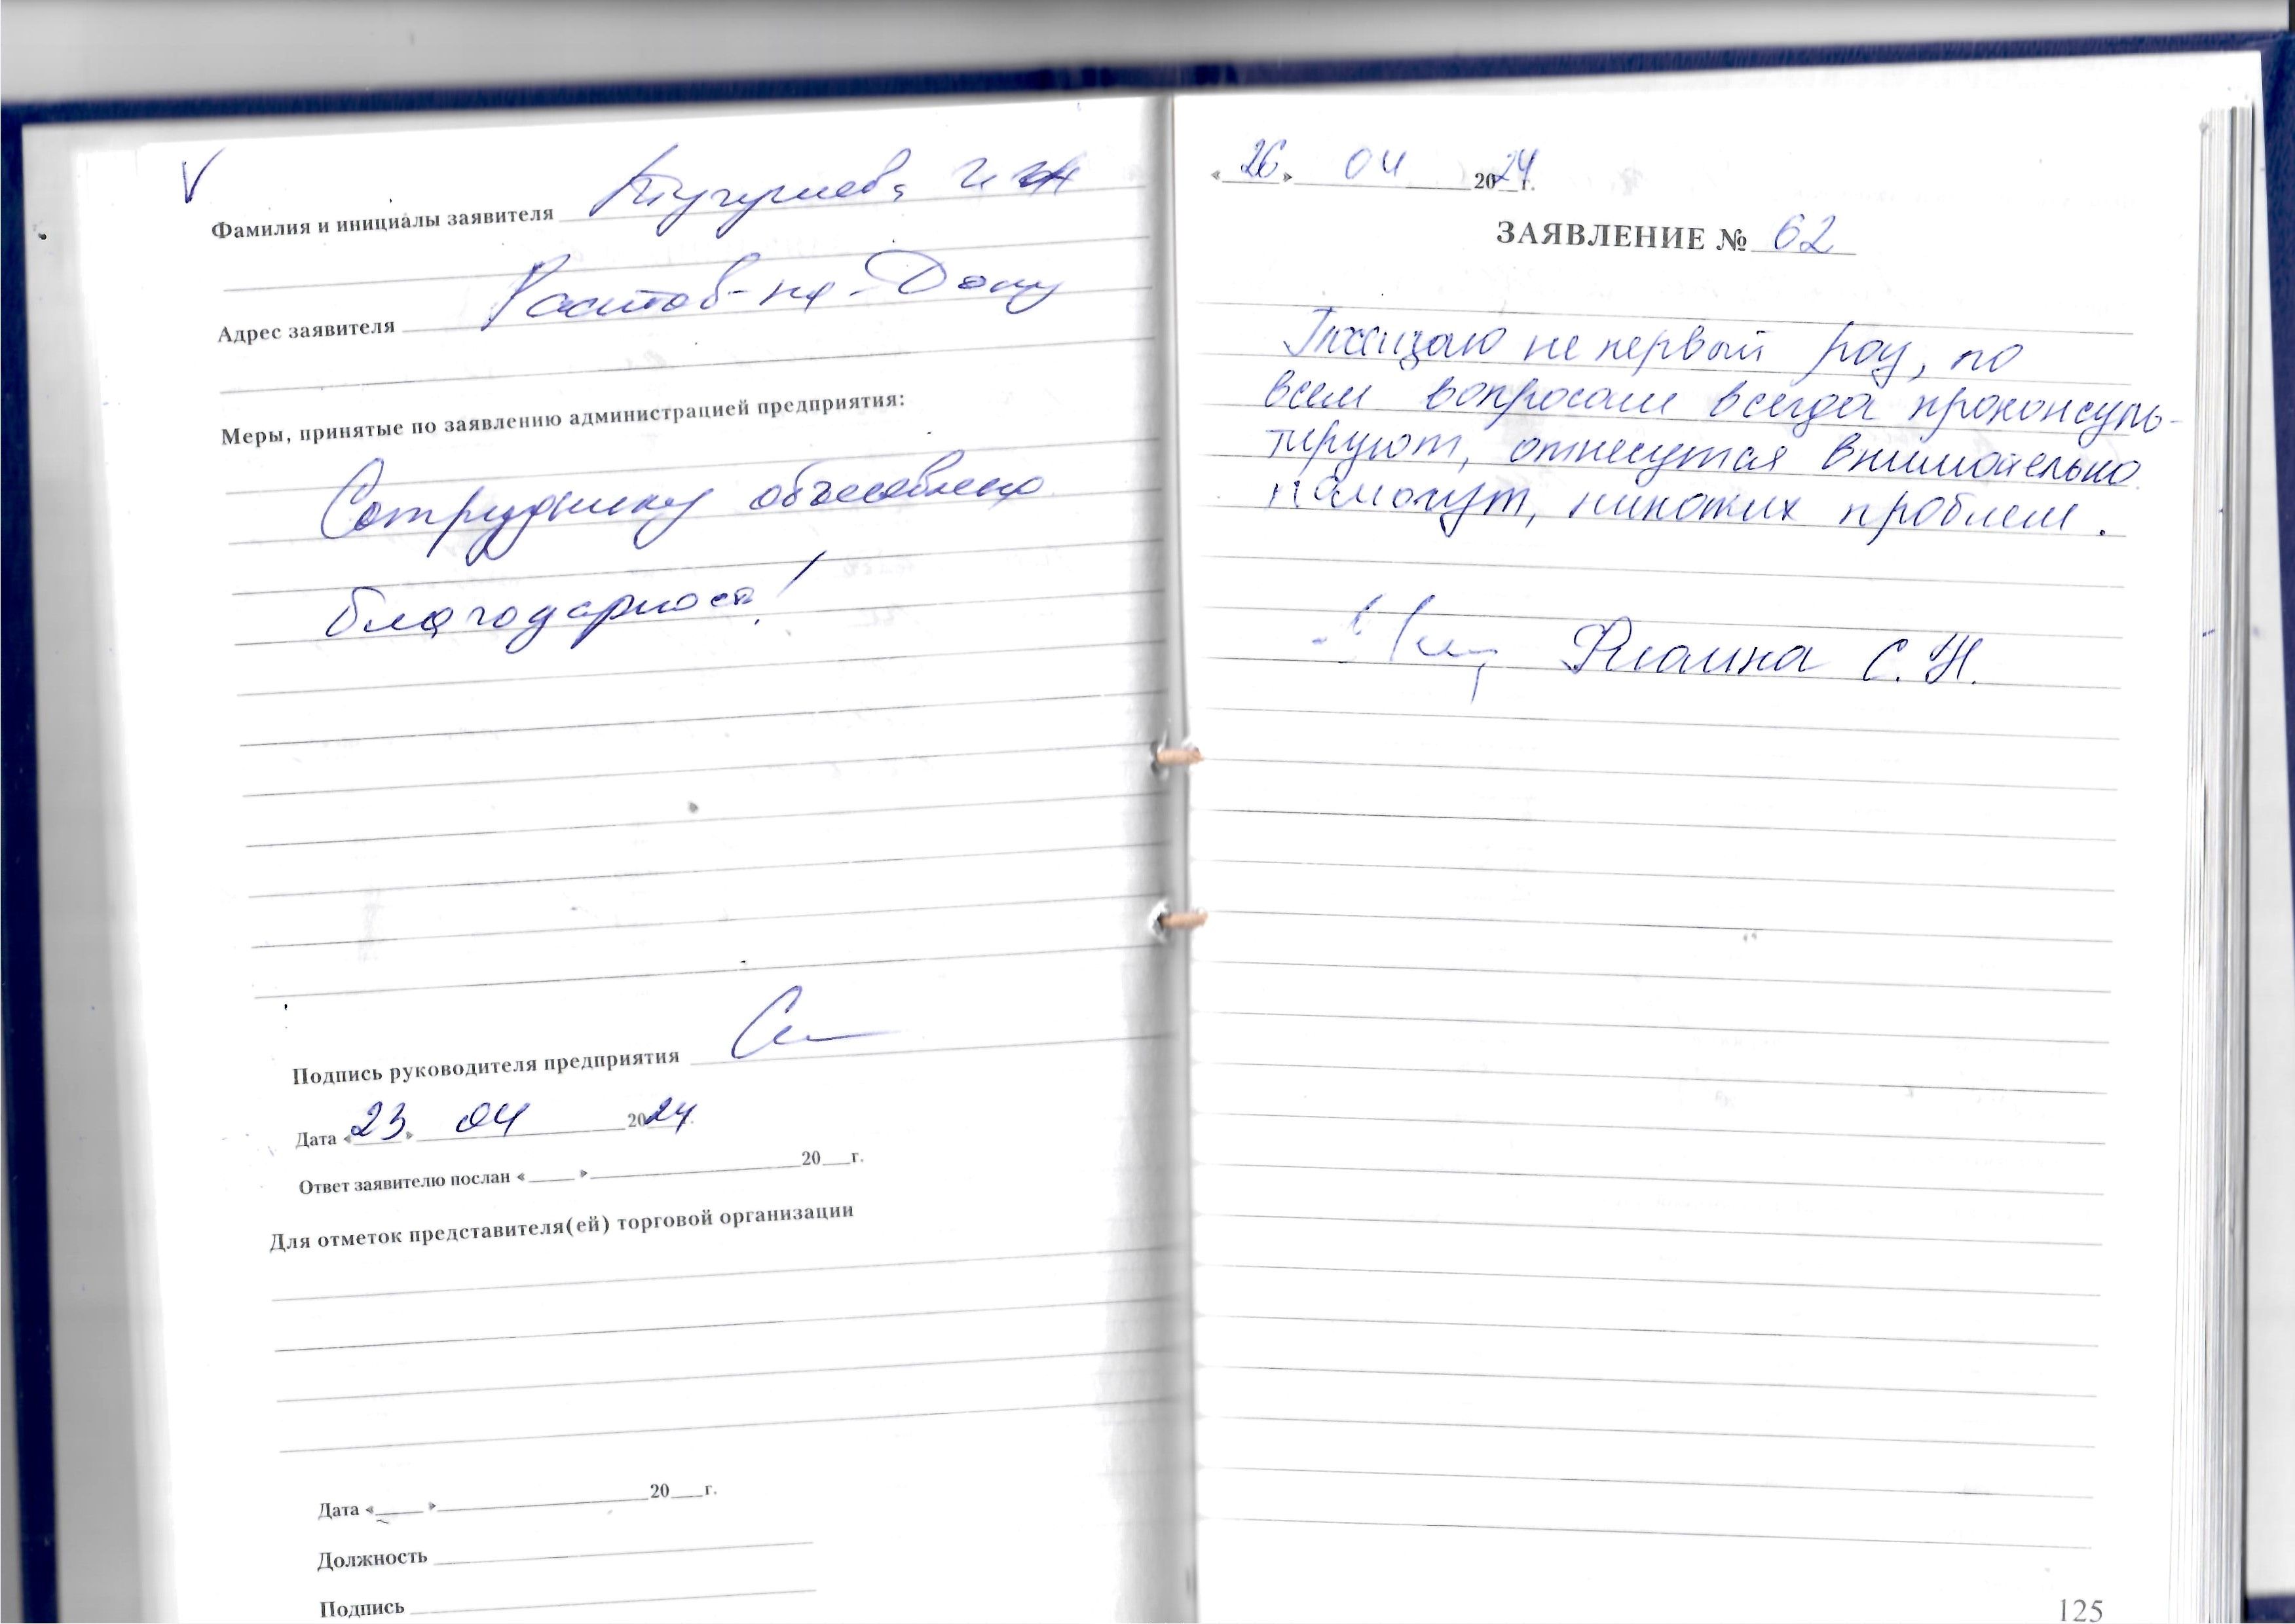 Фамилия и инициалы заявителя
Адрес заявителя Ростов-на-Дону
Меры, принятые по заявлению администрацией предприятия:
Сотруднику объявлено
благодарность!
Подпись руководителя предприятия
Дата «23» 04 2024
Ответ заявителю послан « » 20 г.
Для отметок представителя(ей) торговой организации
Дата « » 20 г.
Должность
Подпись
«26» 04 2024 г.
ЗАЯВЛЕНИЕ № 62
не первый раз, по
всем вопросам всегда проконсуль-
тируют, отнесутся внимательно
помогут, никаких проблем.
С. Н.
125